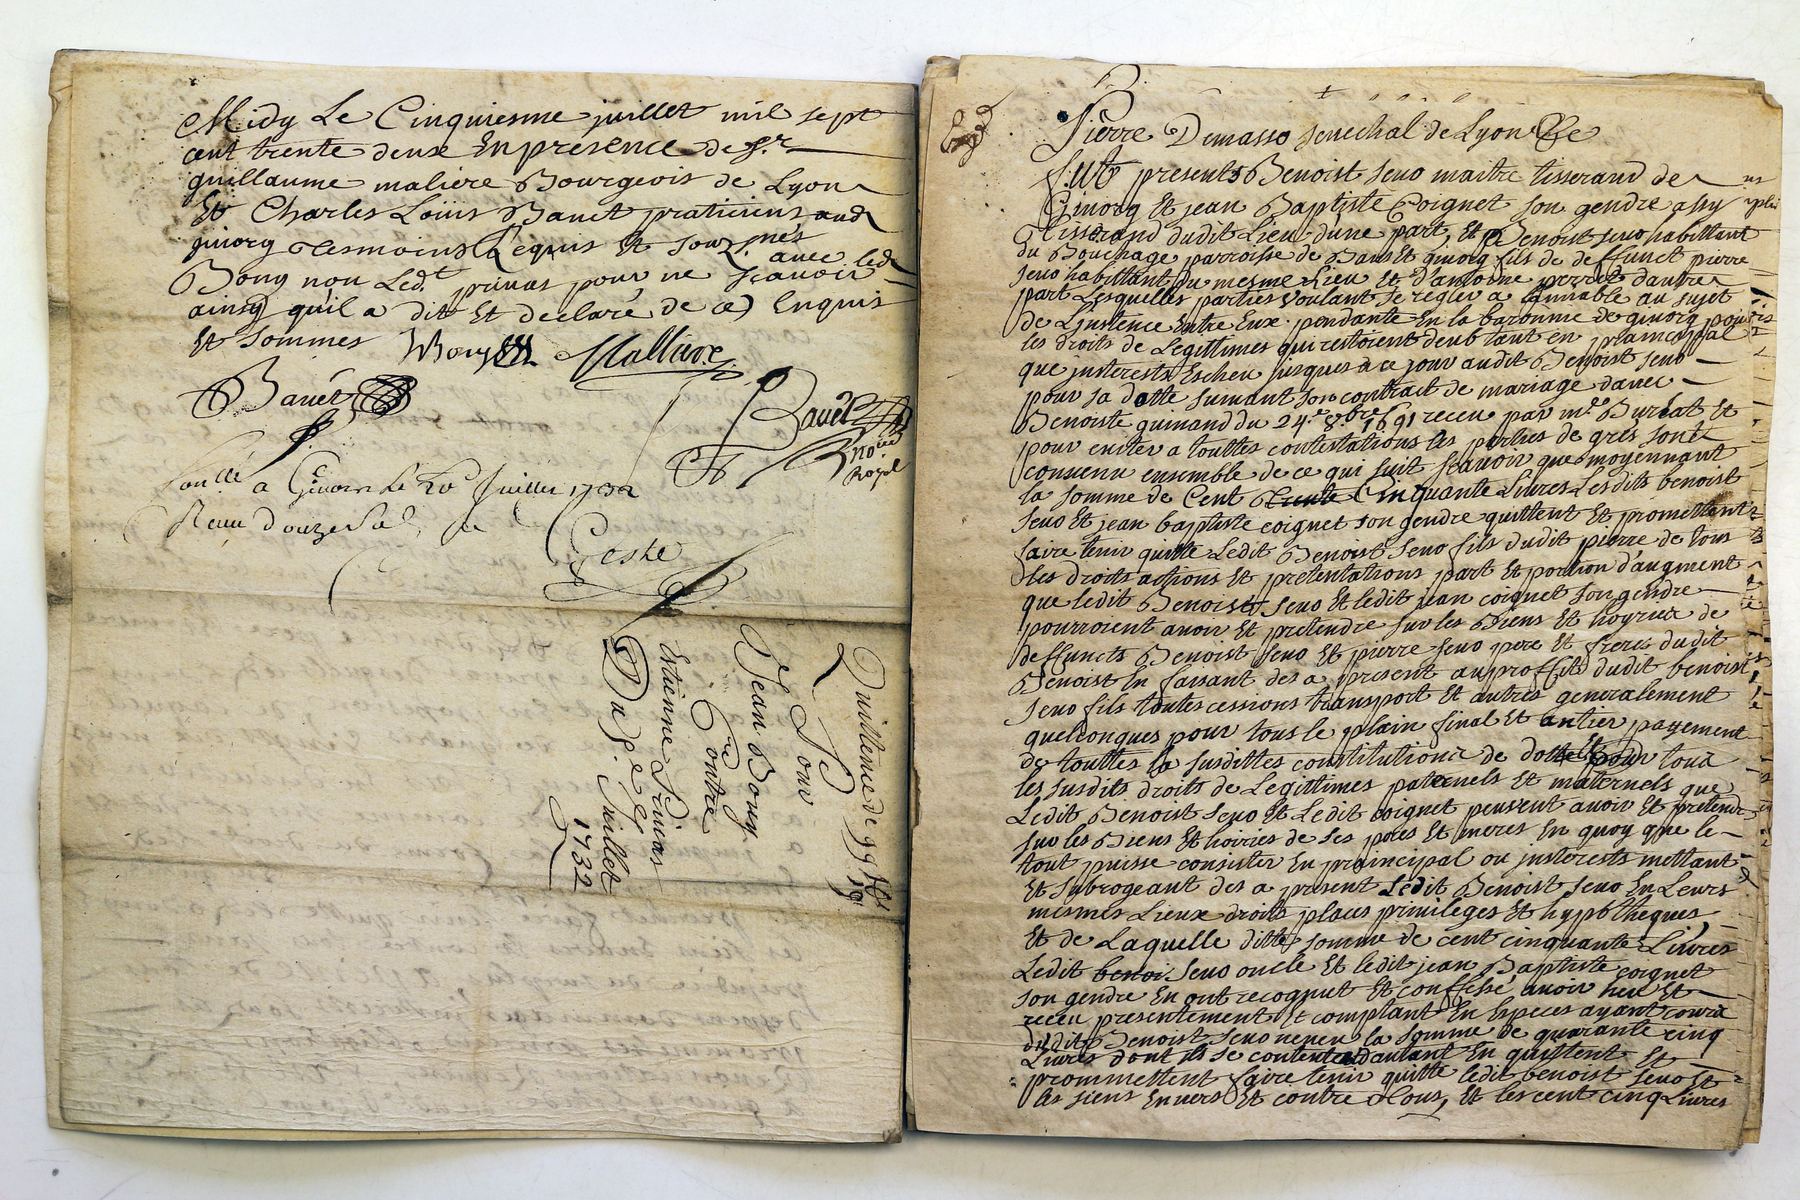 Midy Le Cinquiesme juillet mil sept
cent trente deux En presence de Sr
guillaume maliere Bourgeois de Lyon
Et Charles Loüis Banet praticiens aud
givorg tesmoins Requis Et souz.nés
avec led
Bony non Led.t privas pour ne scavoir
ainsy qu'il a dit Et declaré de ce Enquis
Et sommes Bony Malliere
Banet
Banet
no.re
Royal
Con.llé a Givors le 20e Juillet 1732
Receu douze sol
Geste
Quittance de 99
Pour
Jean Bony
Contre
Estienne Privas
Du 5e Juillet
1732
Pierre Demasso senechal de Lyon
fut presents Benoist seno maitre tisserand de
Givorg Et jean Baptiste Coignet son gendre assy
tisserand dudit Lieu dune part, Et Benoist seno habittant
du Bouchage parroisse de Bans Et givorg fils de deffunct pierre
seno habittant du mesme Lieu Et d'antoine perret dautre
part Lesquelles parties voulant se regler a l'amiable au sujet
de L'instence Entre Eux pendante En la baronnie de givorg pour
les droits de Legittimes qui restoient deub tant en princypal
que justerests Escheu jusques a ce jour audit Benoist seno
pour sa dotte suivant son contrait de mariage d'avec
Benoiste guinand du 24.e 8.bre 1691 receu par m.e Burlat Et
pour eviter a touttes contestations les parties de grés sont
convenu ensemble de ce qui suit scavoir que moyennant
la somme de Cent Cinquante Livres Lesdits benoist
seno Et jean baptiste coignet son gendre quittent Et promettent
faire tenir quitte Ledit Benoist seno fils dudit pierre de tous
les droits actions Et pretentations part Et portion d'augment
que ledit Benoist seno Et ledit jean coignet son gendre
pourroient avoir Et pretendre sur les Biens Et hoyries de
deffuncts Benoist seno Et pierre seno pere Et freres dudit
Benoist En faisant des a present au proffit dudit benoist
seno fils touttes cessions transport Et autres generalement
quelconques pour tous le plain final Et antier payement
de touttes la susdittes constitutions de dotte Et pour tous
les susdits droits de Legittimes paternels Et maternels que
Ledit Benoist seno Et Ledit coignet peuvent avoir Et pretendre
sur les Biens Et hoiries de ses peres Et meres En quoy que le
tout puisse consister En princypal ou justerests mettant
Et subrogeant des a present Ledit Benoist seno En Leurs
mesmes Lieux droits places privileges Et hypotheques
Et de Laquelle ditte somme de cent cinquante Livres
Ledit benoi seno oncle Et ledit jean Baptiste coignet
son gendre En ont recognut Et confessé avoir heu Et
receu presentement Et comptant En Especes ayant cours
dudit Benoist seno neveu la somme de quarante cinq
Livres dont ils se contentent d'autant En quittent Et
promettent faire tenir quitte ledit benoist seno Et
les siens Envers Et contre tous, Et les cent cinq Livres